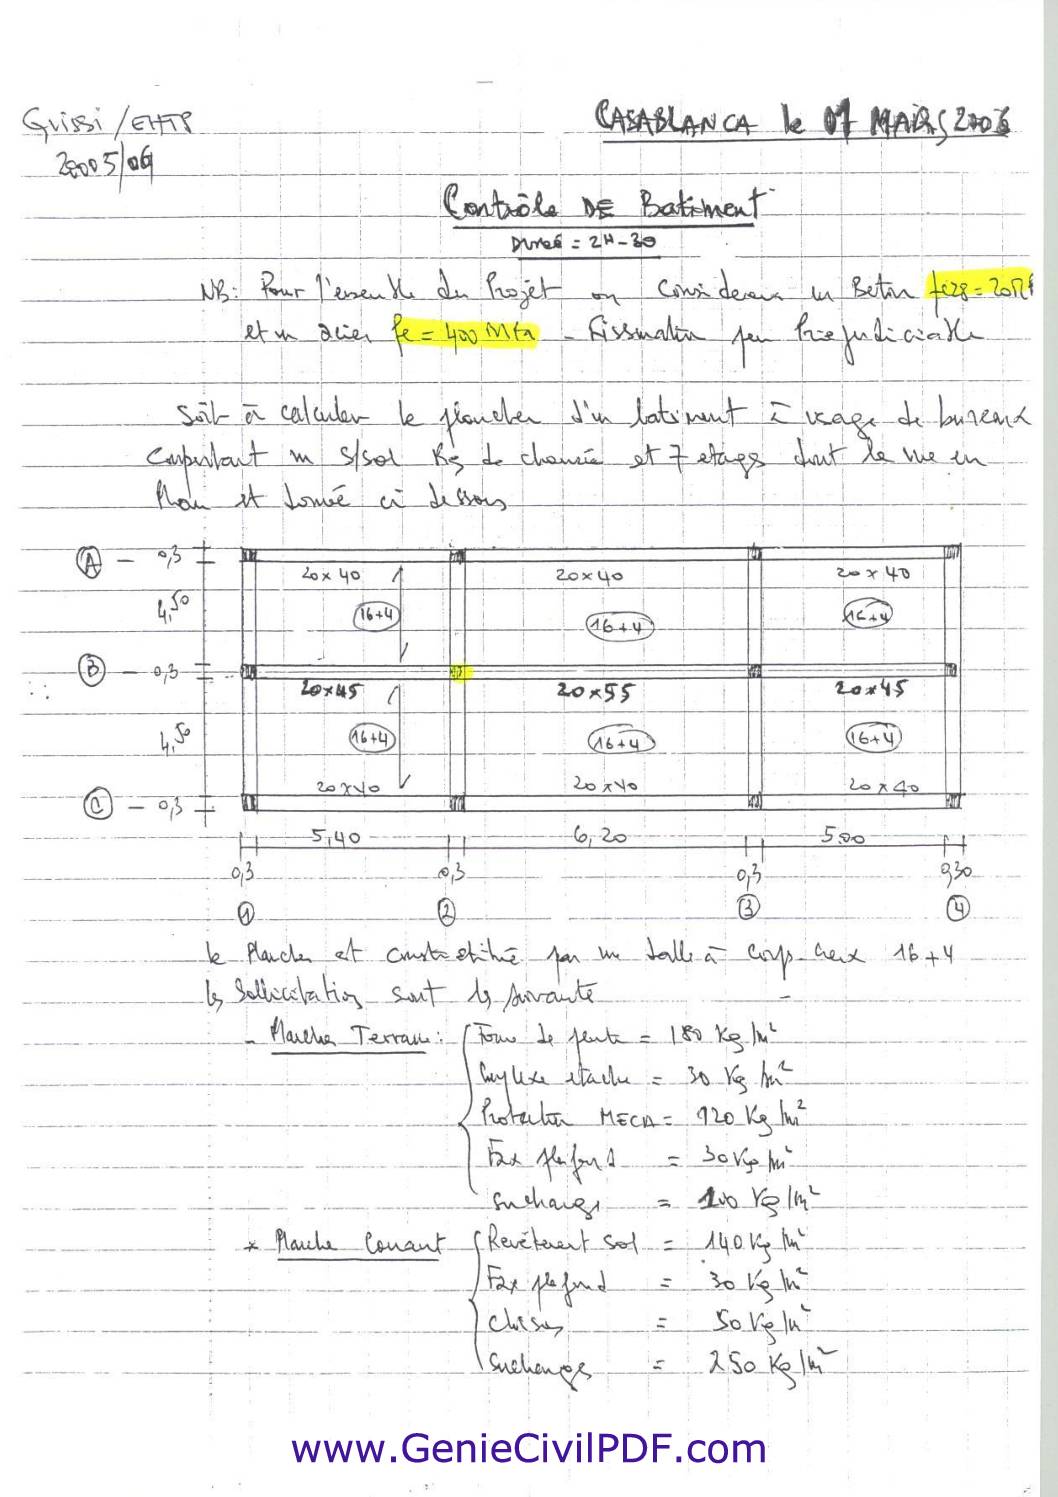 Guissi / EHTP
CASABLANCA le 07 MARS 2006
20005/06
Contrôle DE Batiment
Dureé = 2H-30
NB: Pour l'ensemble du Projet on considerera un Beton fc28 = 20MPa
et un acier fe = 400 MPa - Fissuration peu Préjudiciable
Soit à calculer le plancher d'un batiment à usage de bureaux
comportant un S/sol Rez de chaussée et 7 etages dont la vue en
Plan est donnée ci dessous
A - 0,3
20x40 20x40 20x40
4,50
16+4 16+4 16+4
B - 0,3
20x45 20x55 20x45
4,50
16+4 16+4 16+4
20x40 20x40 20x40
C - 0,3
5,40 6,20 5.00
0,3 0,3 0,3 0,30
1 2 3 4
le Plancher est constitué par une dalle à corps creux 16+4
les Sollicitations sont les suivantes
- Plancher Terrasse: Forme de pente = 180 Kg/m²
Complexe etanche = 30 Kg/m²
Protection MECA = 120 Kg/m²
Fax plafond = 30 Kg/m²
Surcharges = 100 Kg/m²
* Plancher Courant Revêtement sol = 140 Kg/m²
Fax plafond = 30 Kg/m²
Cloisons = 50 Kg/m²
Surcharges = 250 Kg/m²
www.GenieCivilPDF.com